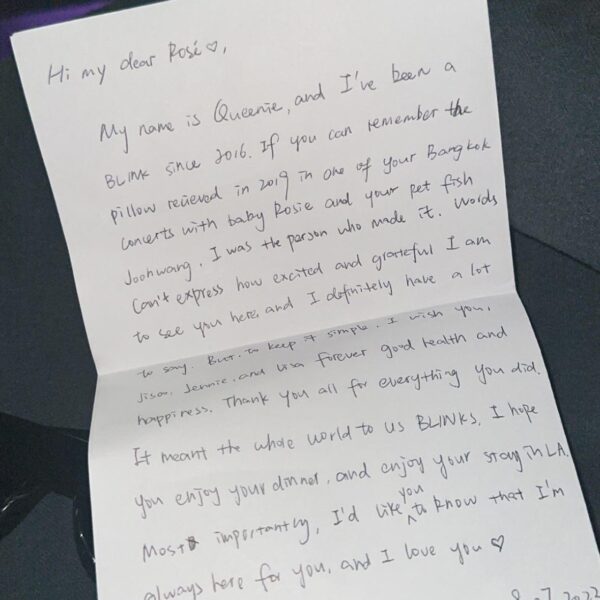 Hi my dear Rosé ♡,
My name is Queenie, and I've been a
BLINK since 2016. If you can remember the
pillow recieved in 2019 in one of your Bangkok
concerts with baby Rosie and your pet fish
Joohwang, I was the person who made it. Words
can't express how excited and grateful I am
to see you here, and I definitely have a lot
to say. But, to keep it simple, I wish you,
Jisoo, Jennie, and Lisa forever good health and
happiness. Thank you all for everything you did.
It meant the whole world to us BLINKS. I hope
you enjoy your dinner, and enjoy your stay in LA.
Most importantly, I'd like you to know that I'm
always here for you, and I love you ♡
2022